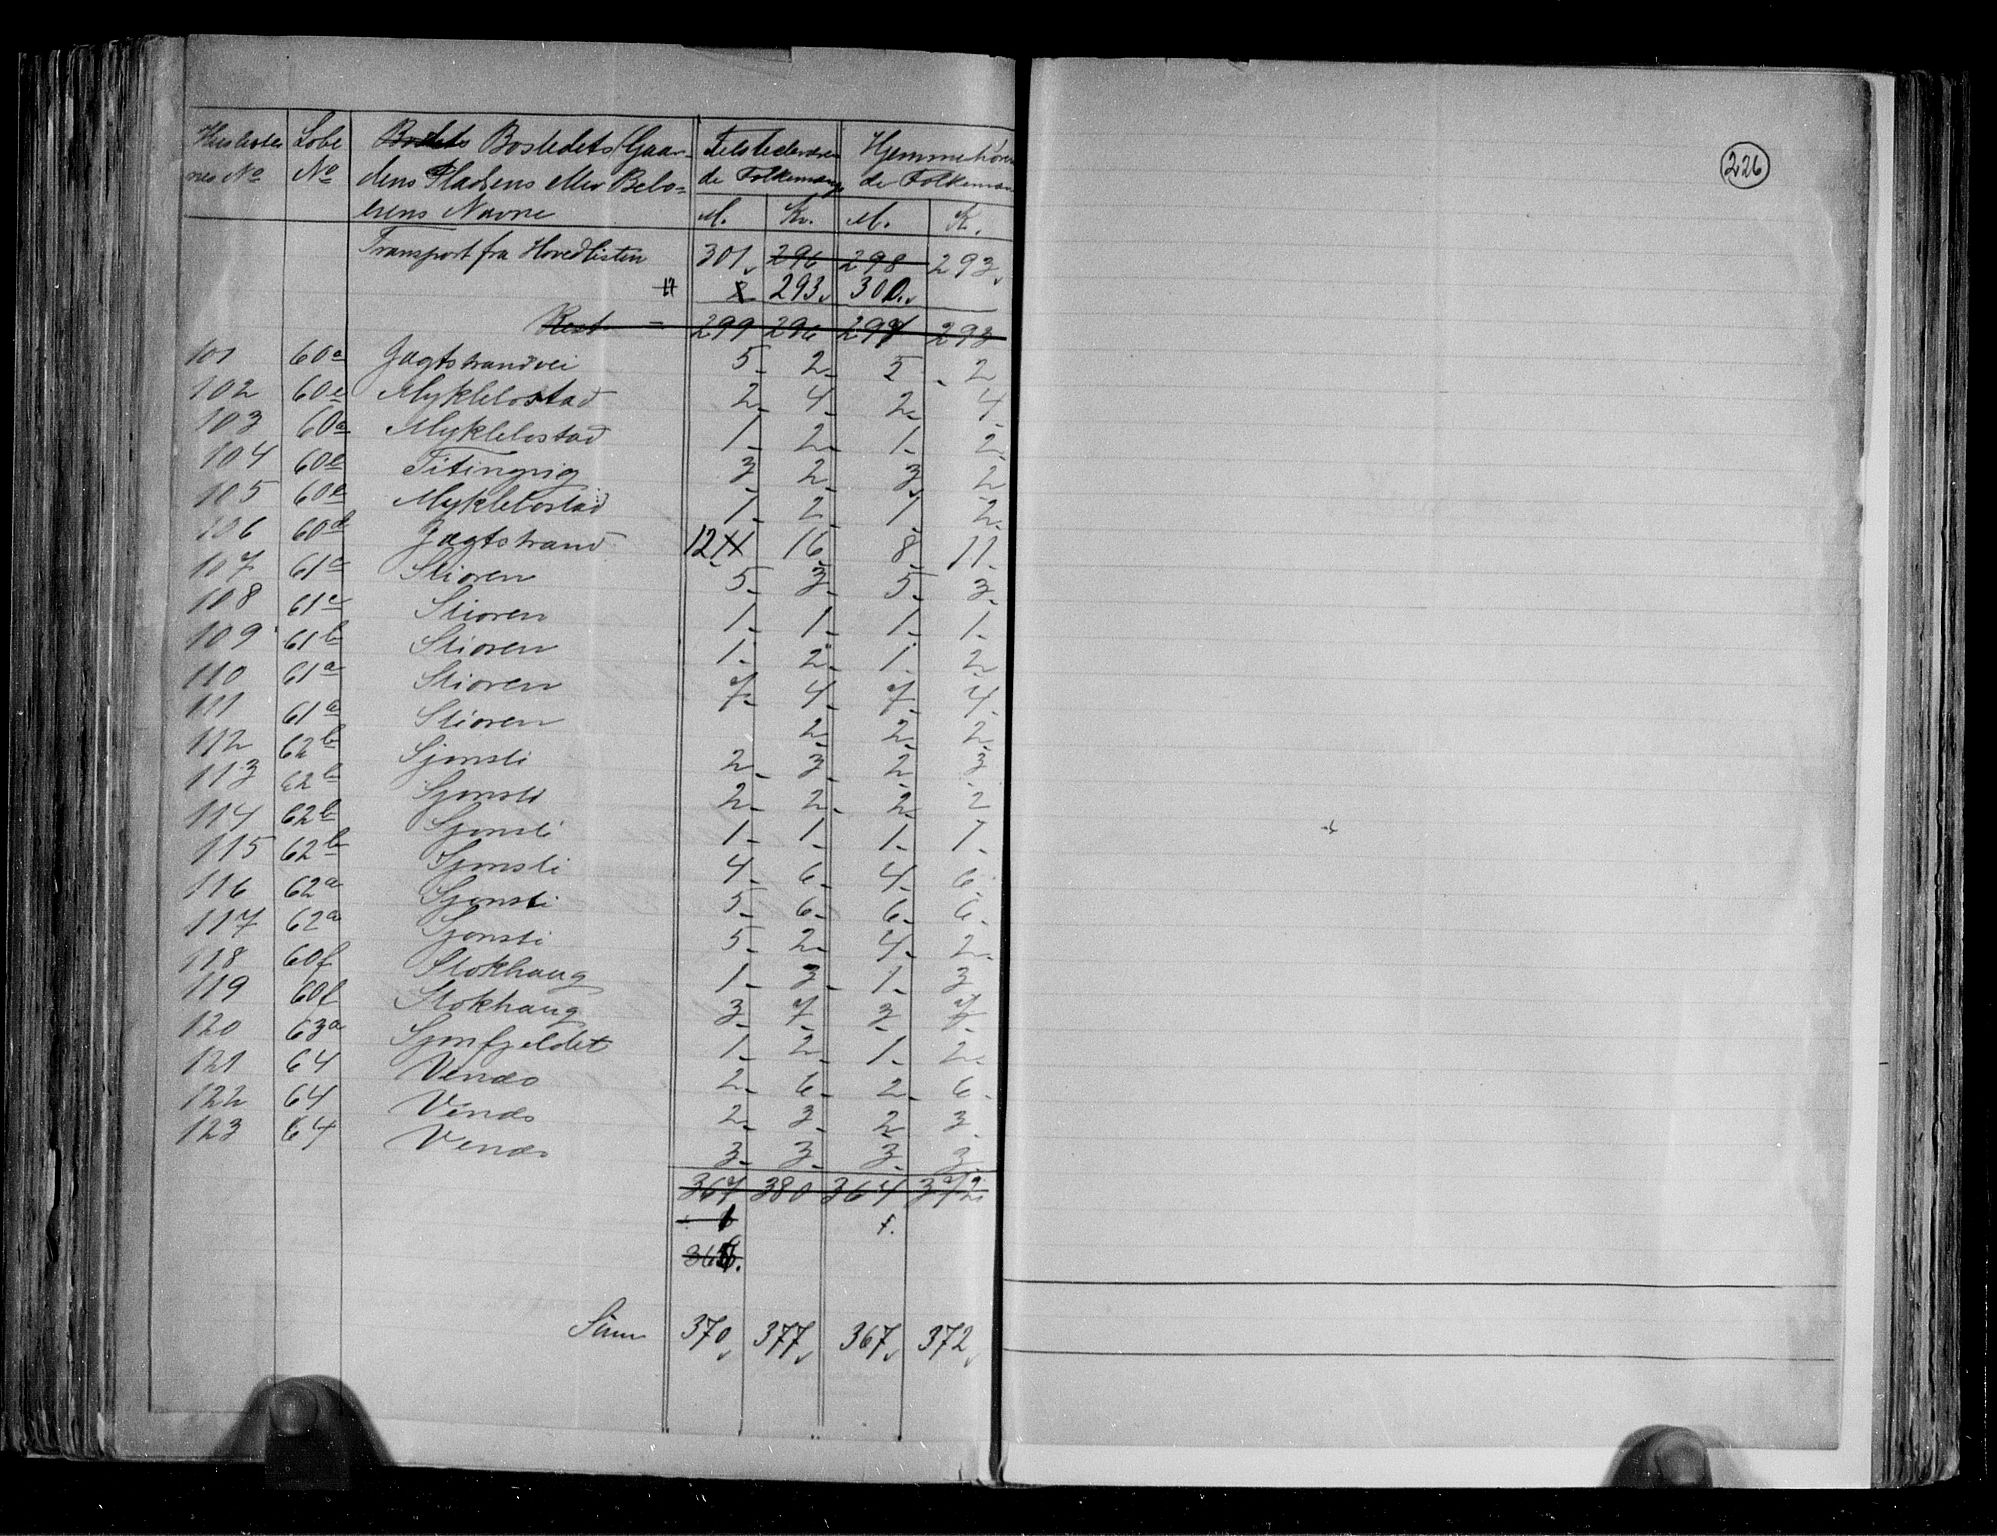 Huslister- Løbe Bostedets (Gaar- Tilstedeværen Hjemmehøren
nes No No dens Pladsens eller Bebo- de Folkemængd de Folkemæn
erens Navne M. Kv. M. K.
Transport fra Hovedlisten 301 296 298 293
293 300
Rest 299 296 297 293
101 60a Jagtstrandvei 5 2 5 2
102 60e Myklebostad 2 4 2 4
103 60a Myklebostad 1 2 1 2
104 60e Titingvig 3 2 3 2
105 60e Myklebostad 1 2 1 2
106 60d Jagtstrand 12 11 16 8 11
107 61a Stioren 5 3 5 3
108 61a Stioren 1 1 1 1
109 61b Stioren 1 2 1 2
110 61a Stioren 7 4 7 4
111 61a Stioren 2 2 2
112 62b Sjonsli 2 3 2 3
113 62b Sjonsli 2 2 2 2
114 62b Sjonsli 1 1 1 1
115 62b Sjonsli 4 6 4 6
116 62a Sjonsli 5 6 6 6
117 62a Sjonsli 5 2 4 2
118 60f Stokhaug 1 3 1 3
119 60f Stokhaug 3 7 3 7
120 63a Sjonfjeldet 1 2 1 2
121 64 Venæs 2 6 2 6
122 64 Venæs 2 3 2 3
123 64 Venæs 3 3 3 3
367 380 364 372
Sum 370 377 367 372
226